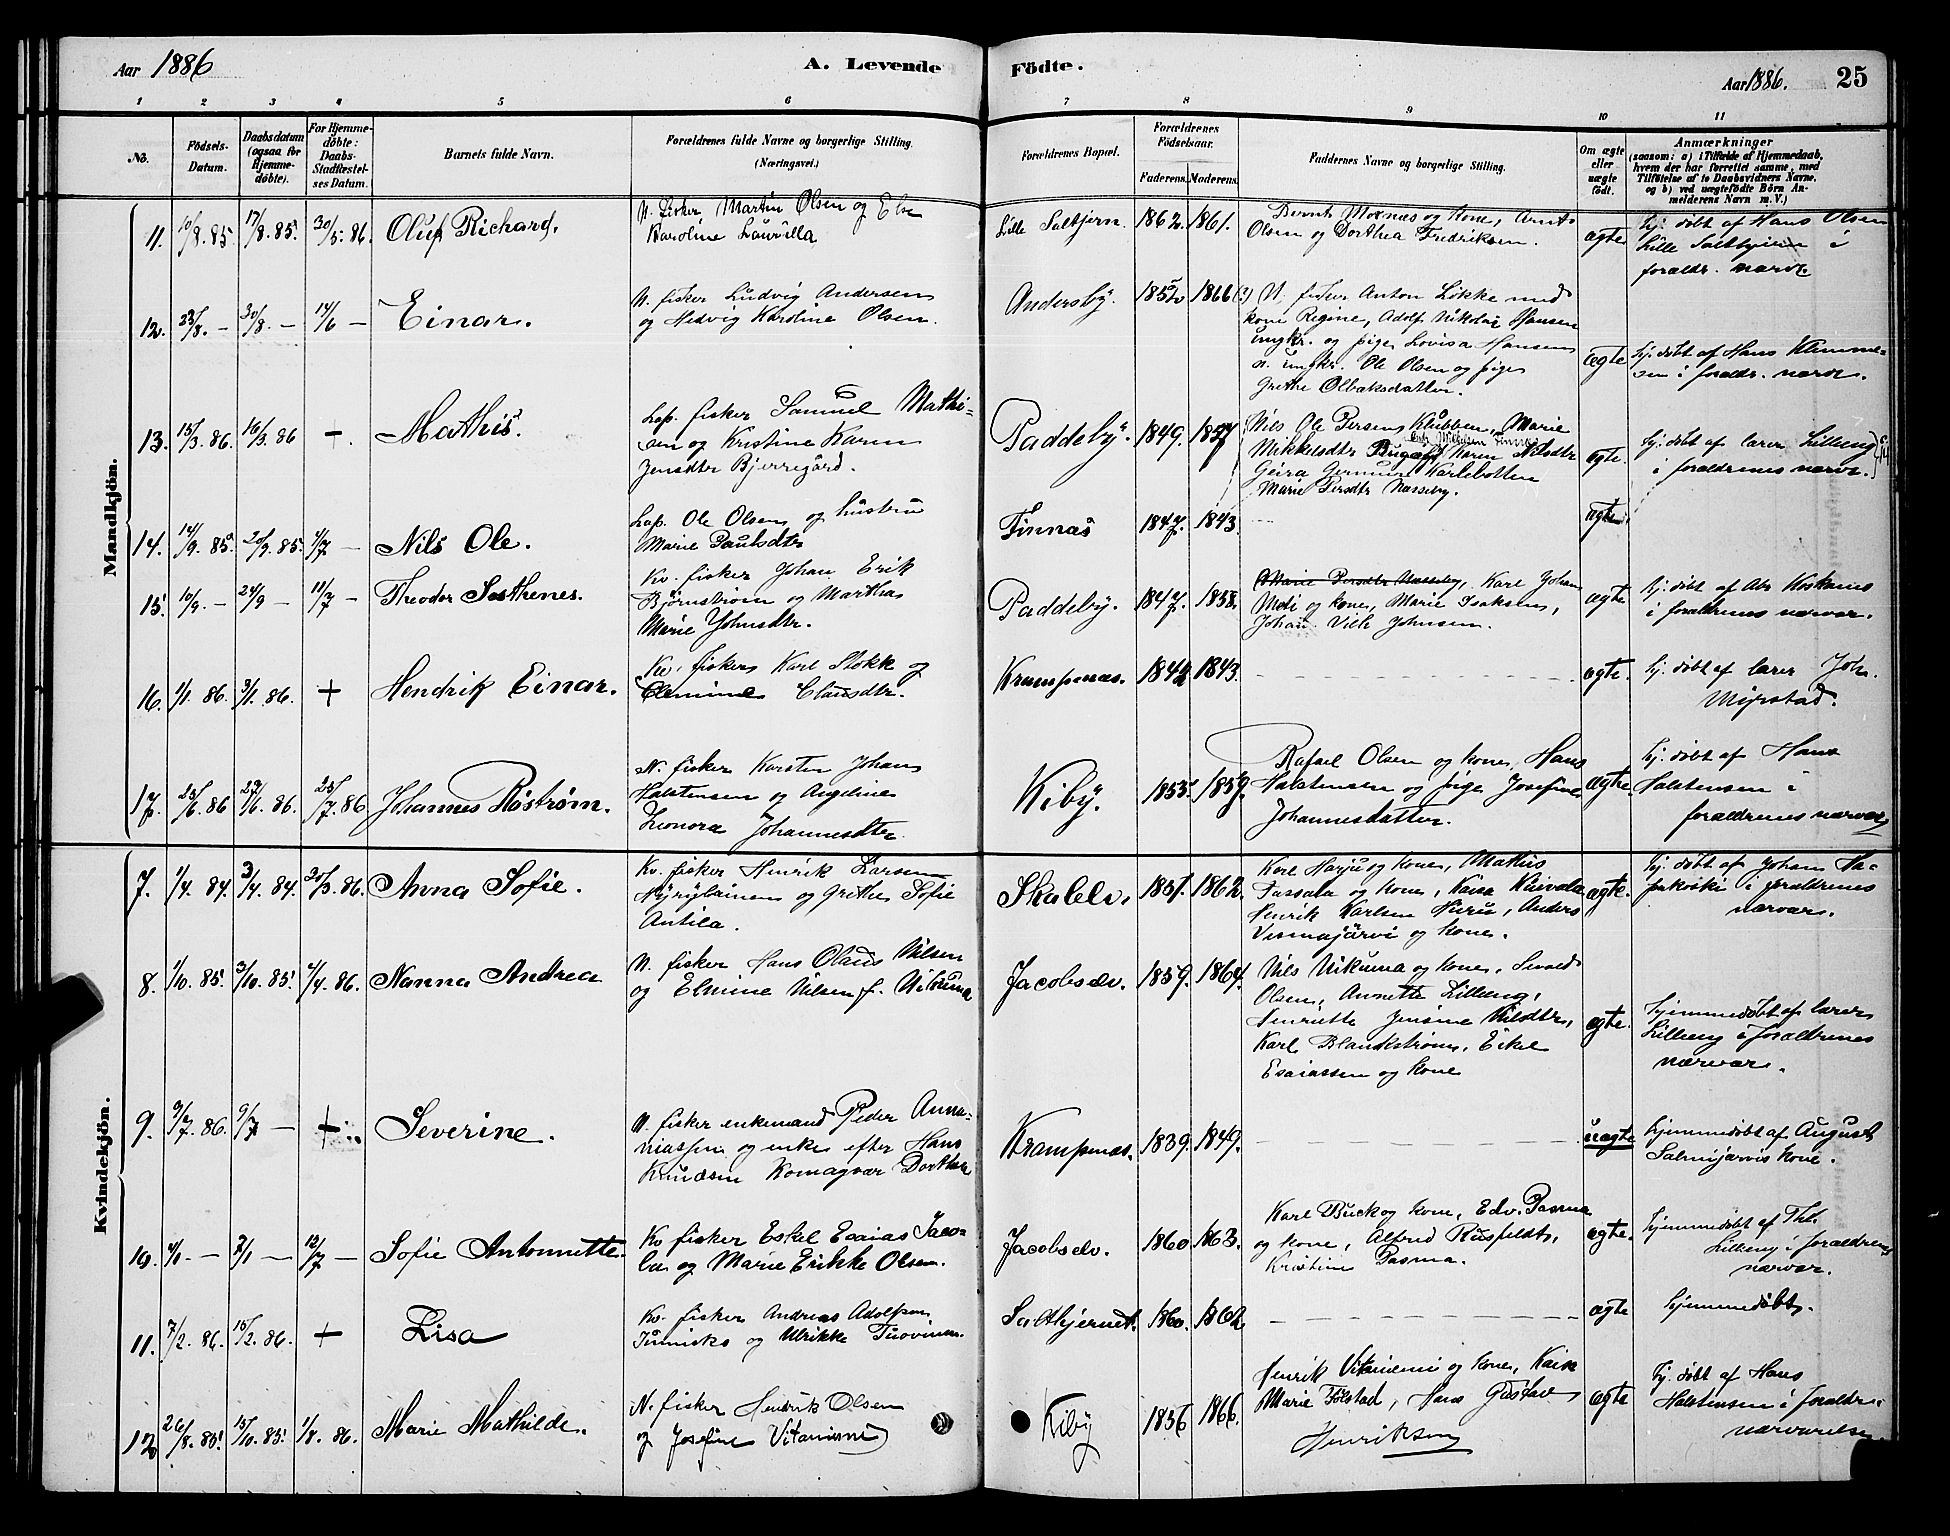 Aar 1886
A. Levende
Födte.
Aar 1886. 25
1 2 3 4 5 6 7 8 9 10 11
No.
Födsels-
Datum.
Daabsdatum
(ogsaa for
Hjemme-
döbte).
For Hjemme-
döbte:
Daabs-
Stadfæstel-
ses Datum.
Barnets fulde Navn.
Forældrenes fulde Navne og borgerlige Stilling.
(Næringsvei.)
Forældrenes Bopæl.
Forældrenes
Födselsaar.
Faderens. Moderens.
Faddernes Navne og borgerlige Stilling.
Om ægte
eller
uægte
födt.
Anmærkninger
(saasom: a) i Tilfælde af Hjemmedaab,
hvem der har forrettet samme, med
Tilföielse af to Daabsvidners Navne,
og b) ved uægtefödte Börn An-
melderens Navn m. V.)
Mandkjön.
11. 10/8. 85. 17/8. 85. 30/5. 86. Oluf Richard.
N. fisker, Martin Olsen og
Karoline
Lille Saltjern. 1862. 1861.
Bernt Moxnæs og kone,
Olsen og Dorthea Fredriksen.
ægte
Hj. döbt af Hans Olsen
Lille i
forældr. nærv.
12. 23/8. — 30/8. — 14/6 — Einar.
N. fisker Ludvig Andersen
og Hedvig Karoline Olsen.
Andersby. 1852 1866
N. fisker Anton Løkke med
kone Regine, Adolf Nikolai Hansen
ungkr. og pige Lovisa Hansen
n. ungkr. Ole Olsen og pige
Grethe
ægte
Hj. döbt af Hans Klemme-
sen i forældr. nærv.
13. 15/3. 86. 16/3. 86 — Mathis.
Lap. fisker Samuel Mathi-
sen og Kristine Karen
Jensdtr Bjerregård.
Paddeby. 1849. 1857
Nils Ole Persen Klubben, Marie
Mikkelsdtr Karen Nilsdtr
Karlebotten
Marie Persdtr Næsseby.
ægte.
Hj. döbt af lærer Lilleeng
i forældrenes nærv.
14. 14/9. 85. 20/9. 85. 4/7 — Nils Ole.
Lap. Ole Olsen og hustru
Marie Paulsdtr
Finnæs 1847. 1843.
ægte.
15. 10/9. — 24/9 — 11/7 — Theodor Sosthenes.
Kv. fisker Johan Erik
Björnström og Martha
Marie Johnsdtr.
Paddeby. 1847. 1858.
Marie Persdtr Næsseby, Karl Johan
og kone, Marie Isaksen,
Johan Johnsen.
ægte
Hj. döbt af Abr Koskamo
i forældrenes nærvær.
16. 1/1. 86. 3/1. 86. + Hendrik Einar.
Kv. fisker Karl Stokk og
Elenine Clausdtr.
Krampenæs. 1842 1843.
ægte.
Hj. döbt af lærer Joh.
Myrstad.
17. 23/6. 86 27/6. 86. 25/7. 86 Johannes Röström.
N. fisker Karsten Johan
Halstensen og Angeline
Leonora Johannesdtr.
Kiby. 1853. 1859.
Rafael Olsen og kone, Hans
Halstensen og pige Josefine
Johannesdatter.
ægte.
Hj. döbt af Hans
Halstensen i
forældrenes nærvær
Kvindekjön.
7. 1/4. 84. 3/4. 84. 20/3. 86. Anna Sofie.
Kv. fisker Henrik Larsen
og Grethe Sofie
Antila.
Skalelv. 1851. 1862.
Karl Harju og kone, Mathis
og kone, Kaisa
Henrik Karlsen Anders
Vesmajärvi og kone.
ægte.
Hj. döbt af Johan
i forældrenes
nærvær.
8. 1/10. 85. 3/10. 85. 4/4. 86. Nanna Andrea
N. fisker Hans Olaus Nilsen
og Elmine Nilsen f.
Jacobselv. 1859. 1864.
Nils og kone,
Olsen, Annette Lilleeng,
Henriette Jensine Nilsdtr,
Karl Blankström, Eskel
Esaiassen og kone
ægte.
Hjemmedöbt af lærer
Lilleeng i forældrenes
nærvær.
9. 9/7. 86. 9/7 — + Severine.
N. fisker enkemand Peder Anna-
niassen og enke efter Hans
Knudsen Komagvær Dorthea
Krampenæs. 1839. 1849.
uægte
Hjemmedöbt af August
Salmijarvis kone.
10. — 7/1 — 12/7 — Sofie Antonnette.
Kv fisker Eskel Esaias Jaco-
la og Marie Erikke Olsen.
Jacobselv. 1860 1863.
Karl Buck og kone, Edv. Pasma
og kone, Alfred Rusfeldt,
Kristine Pasma.
ægte.
Hjemmedöbt af Th.
Lilleeng i forældrenes
nærvær.
11. 7/2. 86. 15/2. 86. + Lisa
Kv. fisker Andreas Adolfsen
og Ulrikke Tuovinen.
Saltkjernet. 1860. 1862
ægte
hjemmedöbt.
12 26/8. 85. 15/10. 85. 1/8. 86. Marie Mathilde.
N. fisker Hendrik Olsen
og Josefine Vitaniemi
Kiby 1856 1866.
Henrik Vitaniemi og kone, Kaisa
Marie Hans Gustav
Henriksen
ægte
Hj. döbt af Hans
Halstensen i foraldre-
nærværelse.